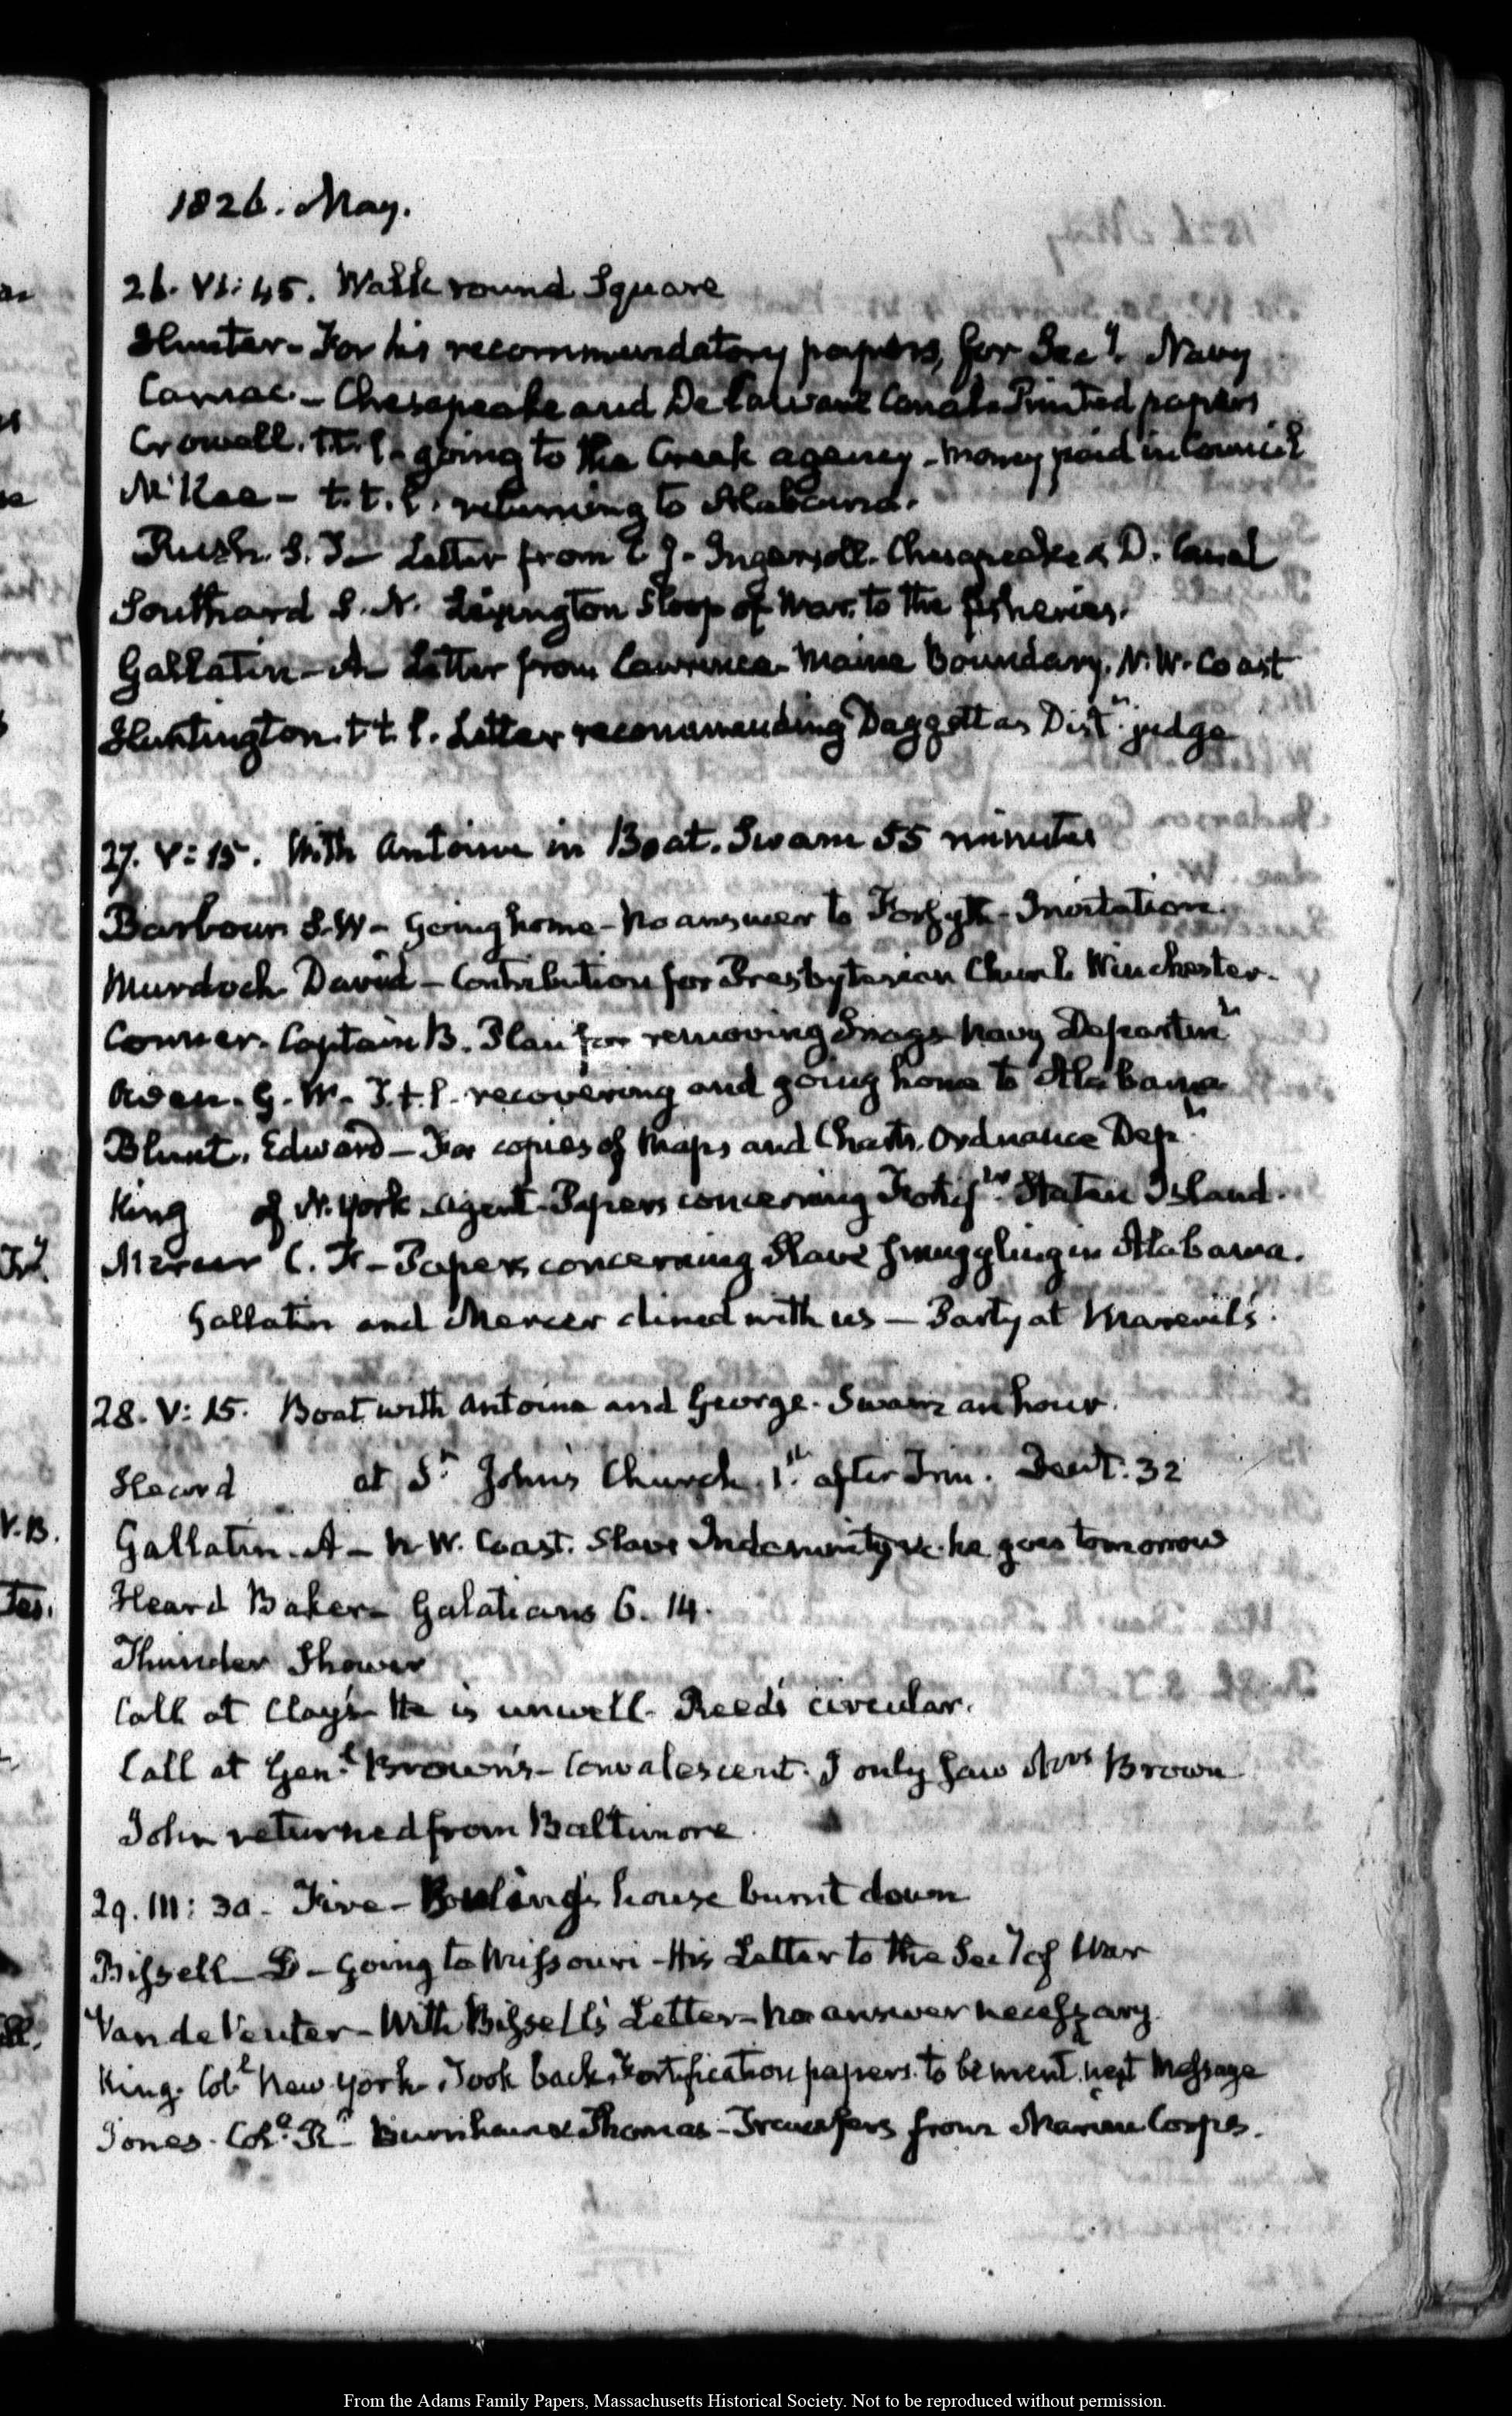 1826. May.
26. VI: 45. Walk round Square
Hunter - For his recommendatory papers, for Secy. Navy
Camac. - Chesapeake and Delaware Canal - Printed papers
Crowell. t.t.l. - going to the Creek agency - money paid in Council
McKee - t.t.l. returning to Alabama.
Rush. S. T. - Letter from C. J. Ingersoll. Chesapeake & D. Canal
Southard S. N. Lexington Sloop of War. to the fisheries.
Gallatin - A - Letter from Lawrence - Maine Boundary. N. W. Coast
Huntington. t.t.l. Letter recommending Daggett as Distt. judge
27. V: 15. With Antoine in Boat. Swam 55 minutes
Barbour S. W - Going home - No answer to Forsyth - Invitation.
Murdoch David - Contribution for Presbyterian Church Winchester.
Conner. Captain B. Plan for removing Snags Navy Departmt
Owen. G. W. T.t.l. recovering and going home to Alabama
Blunt. Edward - For copies of Maps and Charts. Ordnance Dept.
King of N. York. Agent - Papers concerning Fortifns Staten Island.
Mercer C. F. - Papers concerning Slave smuggling in Alabama.
Gallatin and Mercer dined with us - Party at Mareuil's.
28. V: 15. Boat with Antoine and George. Swam an hour.
Heard at St. John's Church. 1st. after Trin. Deut. 32
Gallatin. A - N. W. Coast. Slave Indemnity &c. he goes tomorrow
Heard Baker - Galatians 6. 14.
Thunder Shower
Call at Clay's - He is unwell. Reed's circular.
Call at Genl. Brown's - Convalescent. I only saw Mrs Brown
John returned from Baltimore.
29. III: 30 - Fire - house burnt down
Bissell - D - Going to Missouri - His Letter to the Secy of War
Van de Venter - With Bissell's Letter - no answer necessary.
King. Coll. New York. Took back Fortification papers. to be ment. next Message
Jones. Coll. R. - & Thomas - Transfers from Marine Corps.
From the Adams Family Papers, Massachusetts Historical Society. Not to be reproduced without permission.